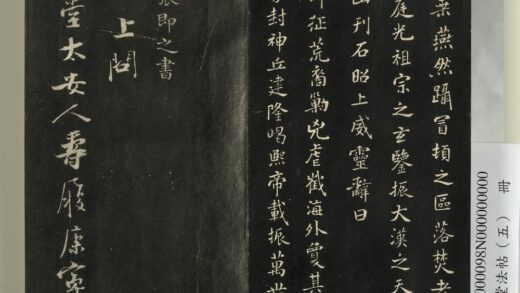 棄燕然躡冒頓之區落焚老
庭光祖宗之玄鑒振大漢之天
山刊石昭上威靈辭曰
征荒裔勦凶虐截海外夐其
封神丘建隆嵑熙帝載振萬世
即之書
上問
堂太安人尊履康寧
法帖（五） 冊
000098N000000000